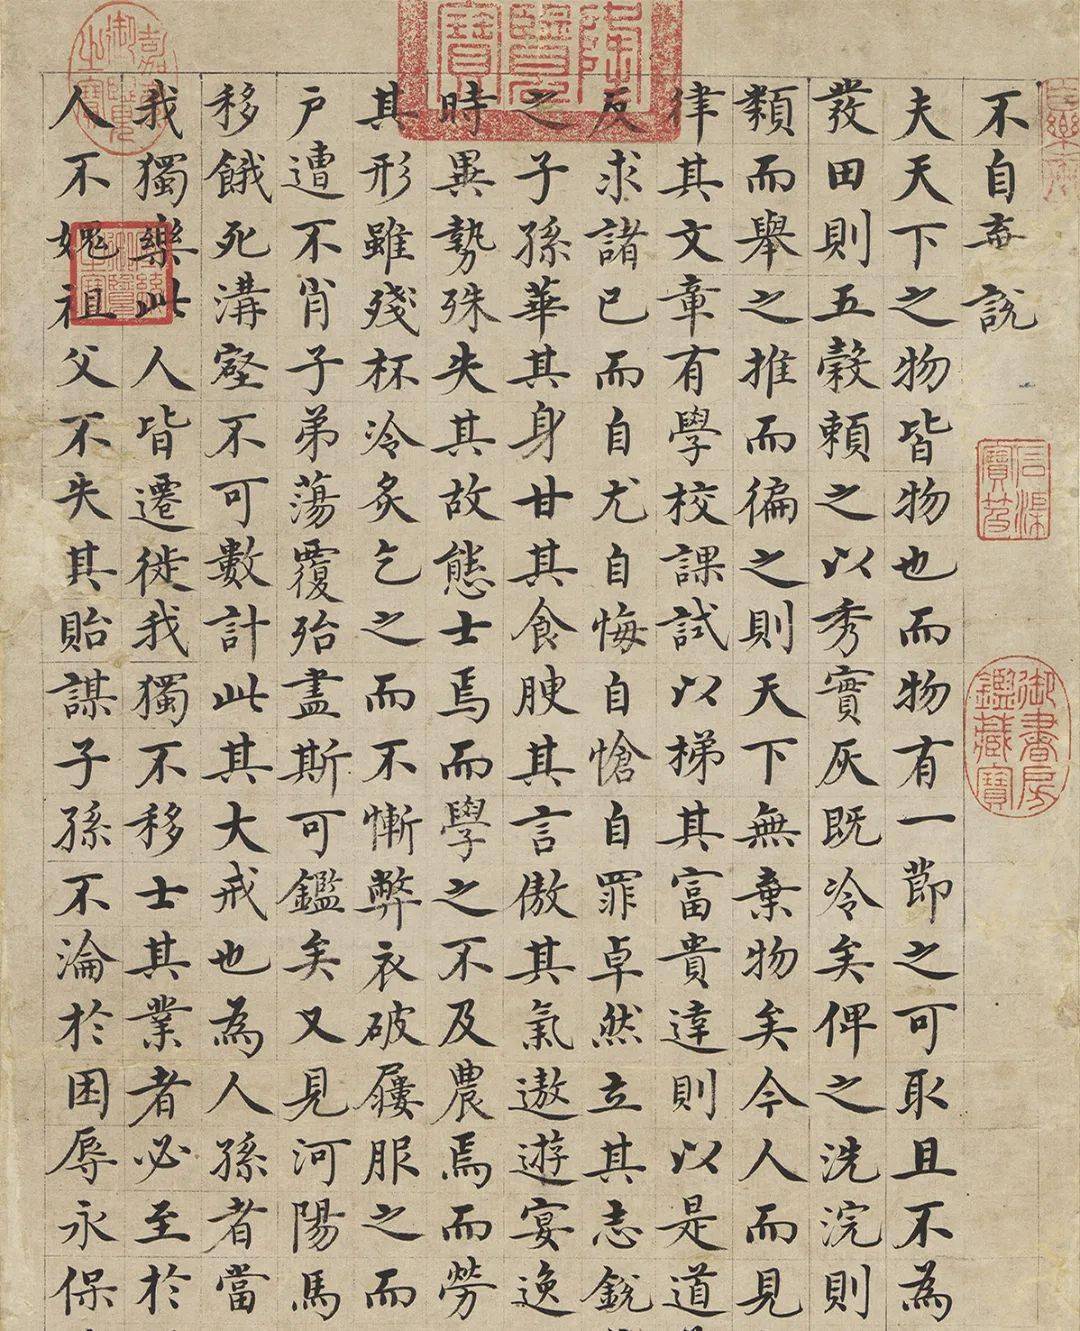 不自棄說
夫天下之物皆物也而物有一節之可取且不為
發田則五穀賴之以秀實灰既冷矣俾之洗浣則
類而舉之推而徧之則天下無棄物矣今人而見
律其文章有學校課試以梯其富貴達則以是道
反求諸己而自尤自悔自愴自罪卓然立其志銳
之子孫華其身甘其食腴其言傲其氣遨遊宴逸
時異勢殊失其故態士焉而學之不及農焉而勞
其形雖殘杯冷炙乞之而不慚弊衣破屨服之而
戶遭不肖子弟蕩覆殆盡斯可鑑矣又見河陽馬
移餓死溝壑不可數計此其大戒也為人孫者當
我獨樂此人皆遷徙我獨不移士其業者必至於
人不媿祖父不失其貽謀子孫不淪於困辱永保
御書房鑑藏寶
嘉慶御覽之寶
宣統御覽之寶